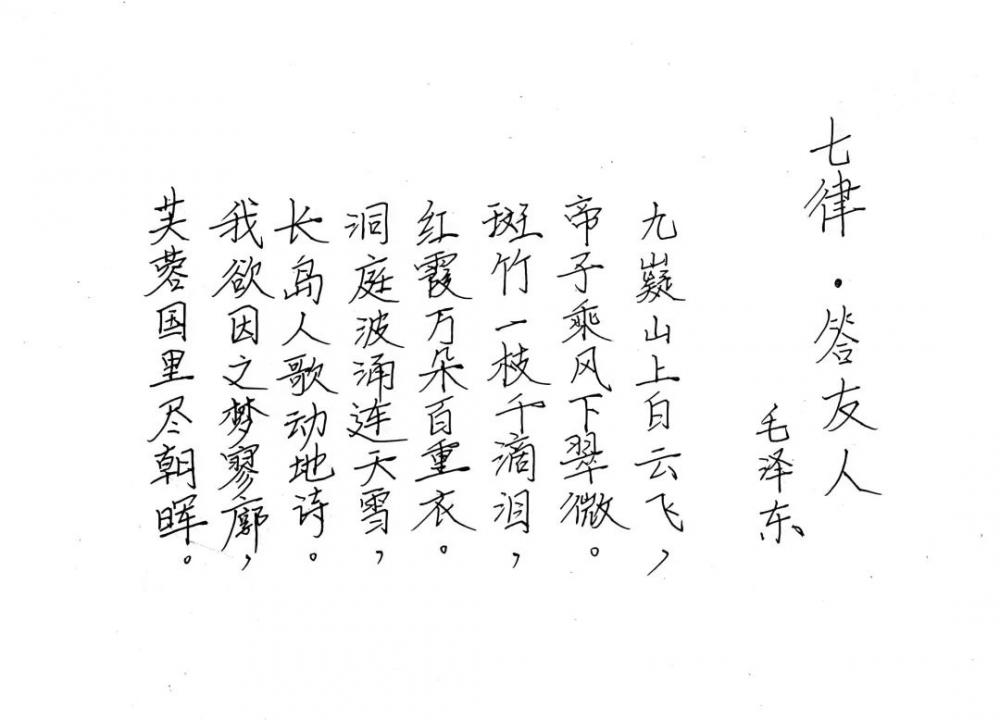 七律·答友人
毛泽东
九嶷山上白云飞，
帝子乘风下翠微。
斑竹一枝千滴泪，
红霞万朵百重衣。
洞庭波涌连天雪，
长岛人歌动地诗。
我欲因之梦寥廓，
芙蓉国里尽朝晖。